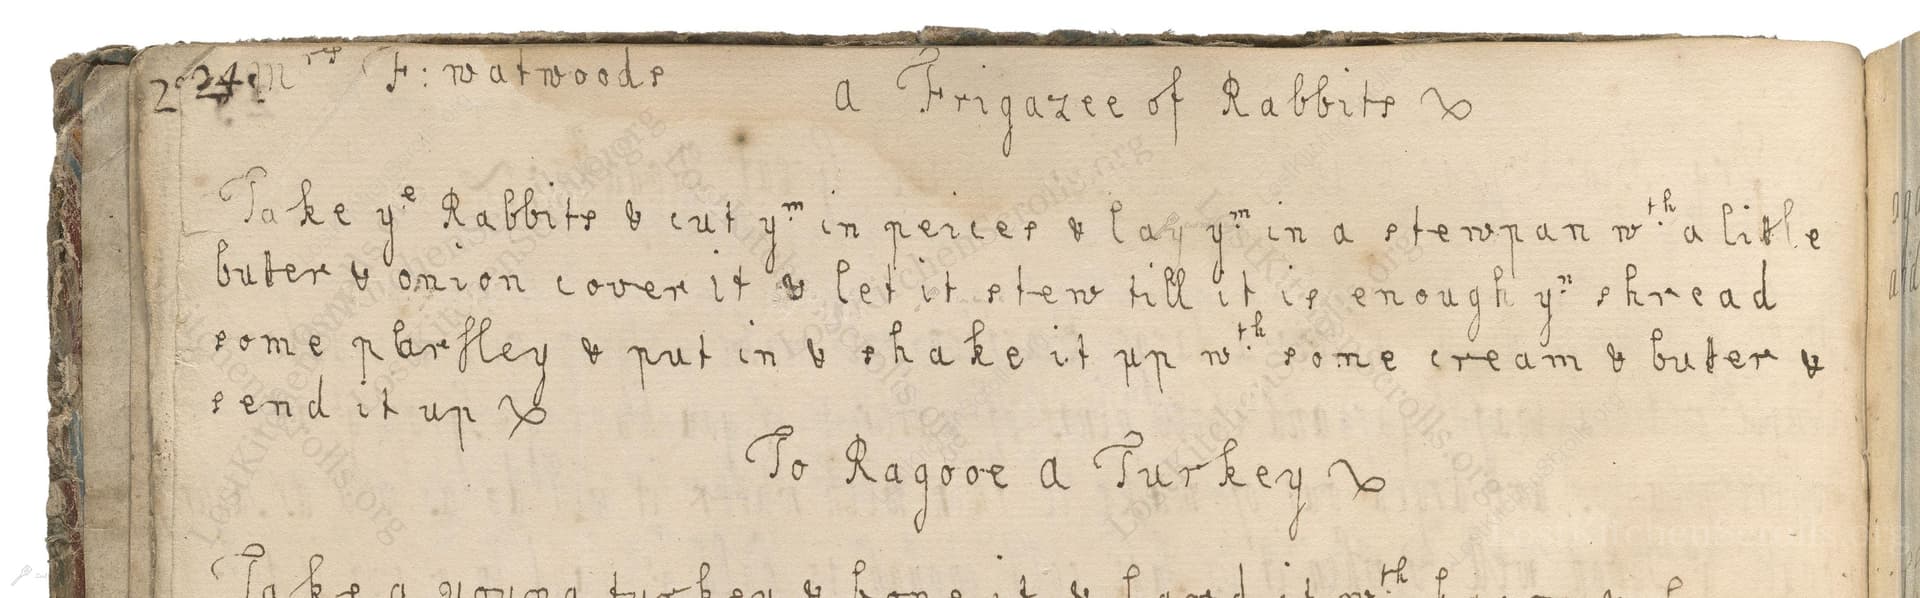 224 Mrs F: watwoods
A Frigazee of Rabbits
Take ye Rabbits & cut ym in peices & lay ym in a stewpan wth a litle
buter & onion cover it & let it stew till it is enough yn shread
some parsley & put in & shake it up wth some cream & buter &
send it up
To Ragooe A Turkey
Take a young turkey & bone it & lard it wth